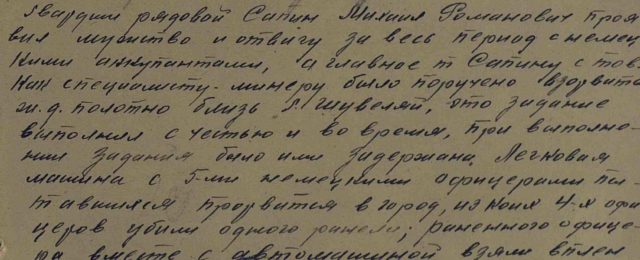 Гвардии рядовой Сапин Михаил Романович проя
вил мужество и отвагу за весь период с немец
кими аккупантами, а главное т Сапину с тов.
как специалисту-минеру было поручено взорвать
ж.д. полотно близь г. это задание
выполнил с честью и во время, при выполне-
нии задания было ими задержана Легковая
машина с 5-ми немецкими офицерами пы
тавшихся прорватся в город, из коих 4-х офи
церов убили одного ранели; раненного офице-
ра вместе с автомашиной взяли вплен